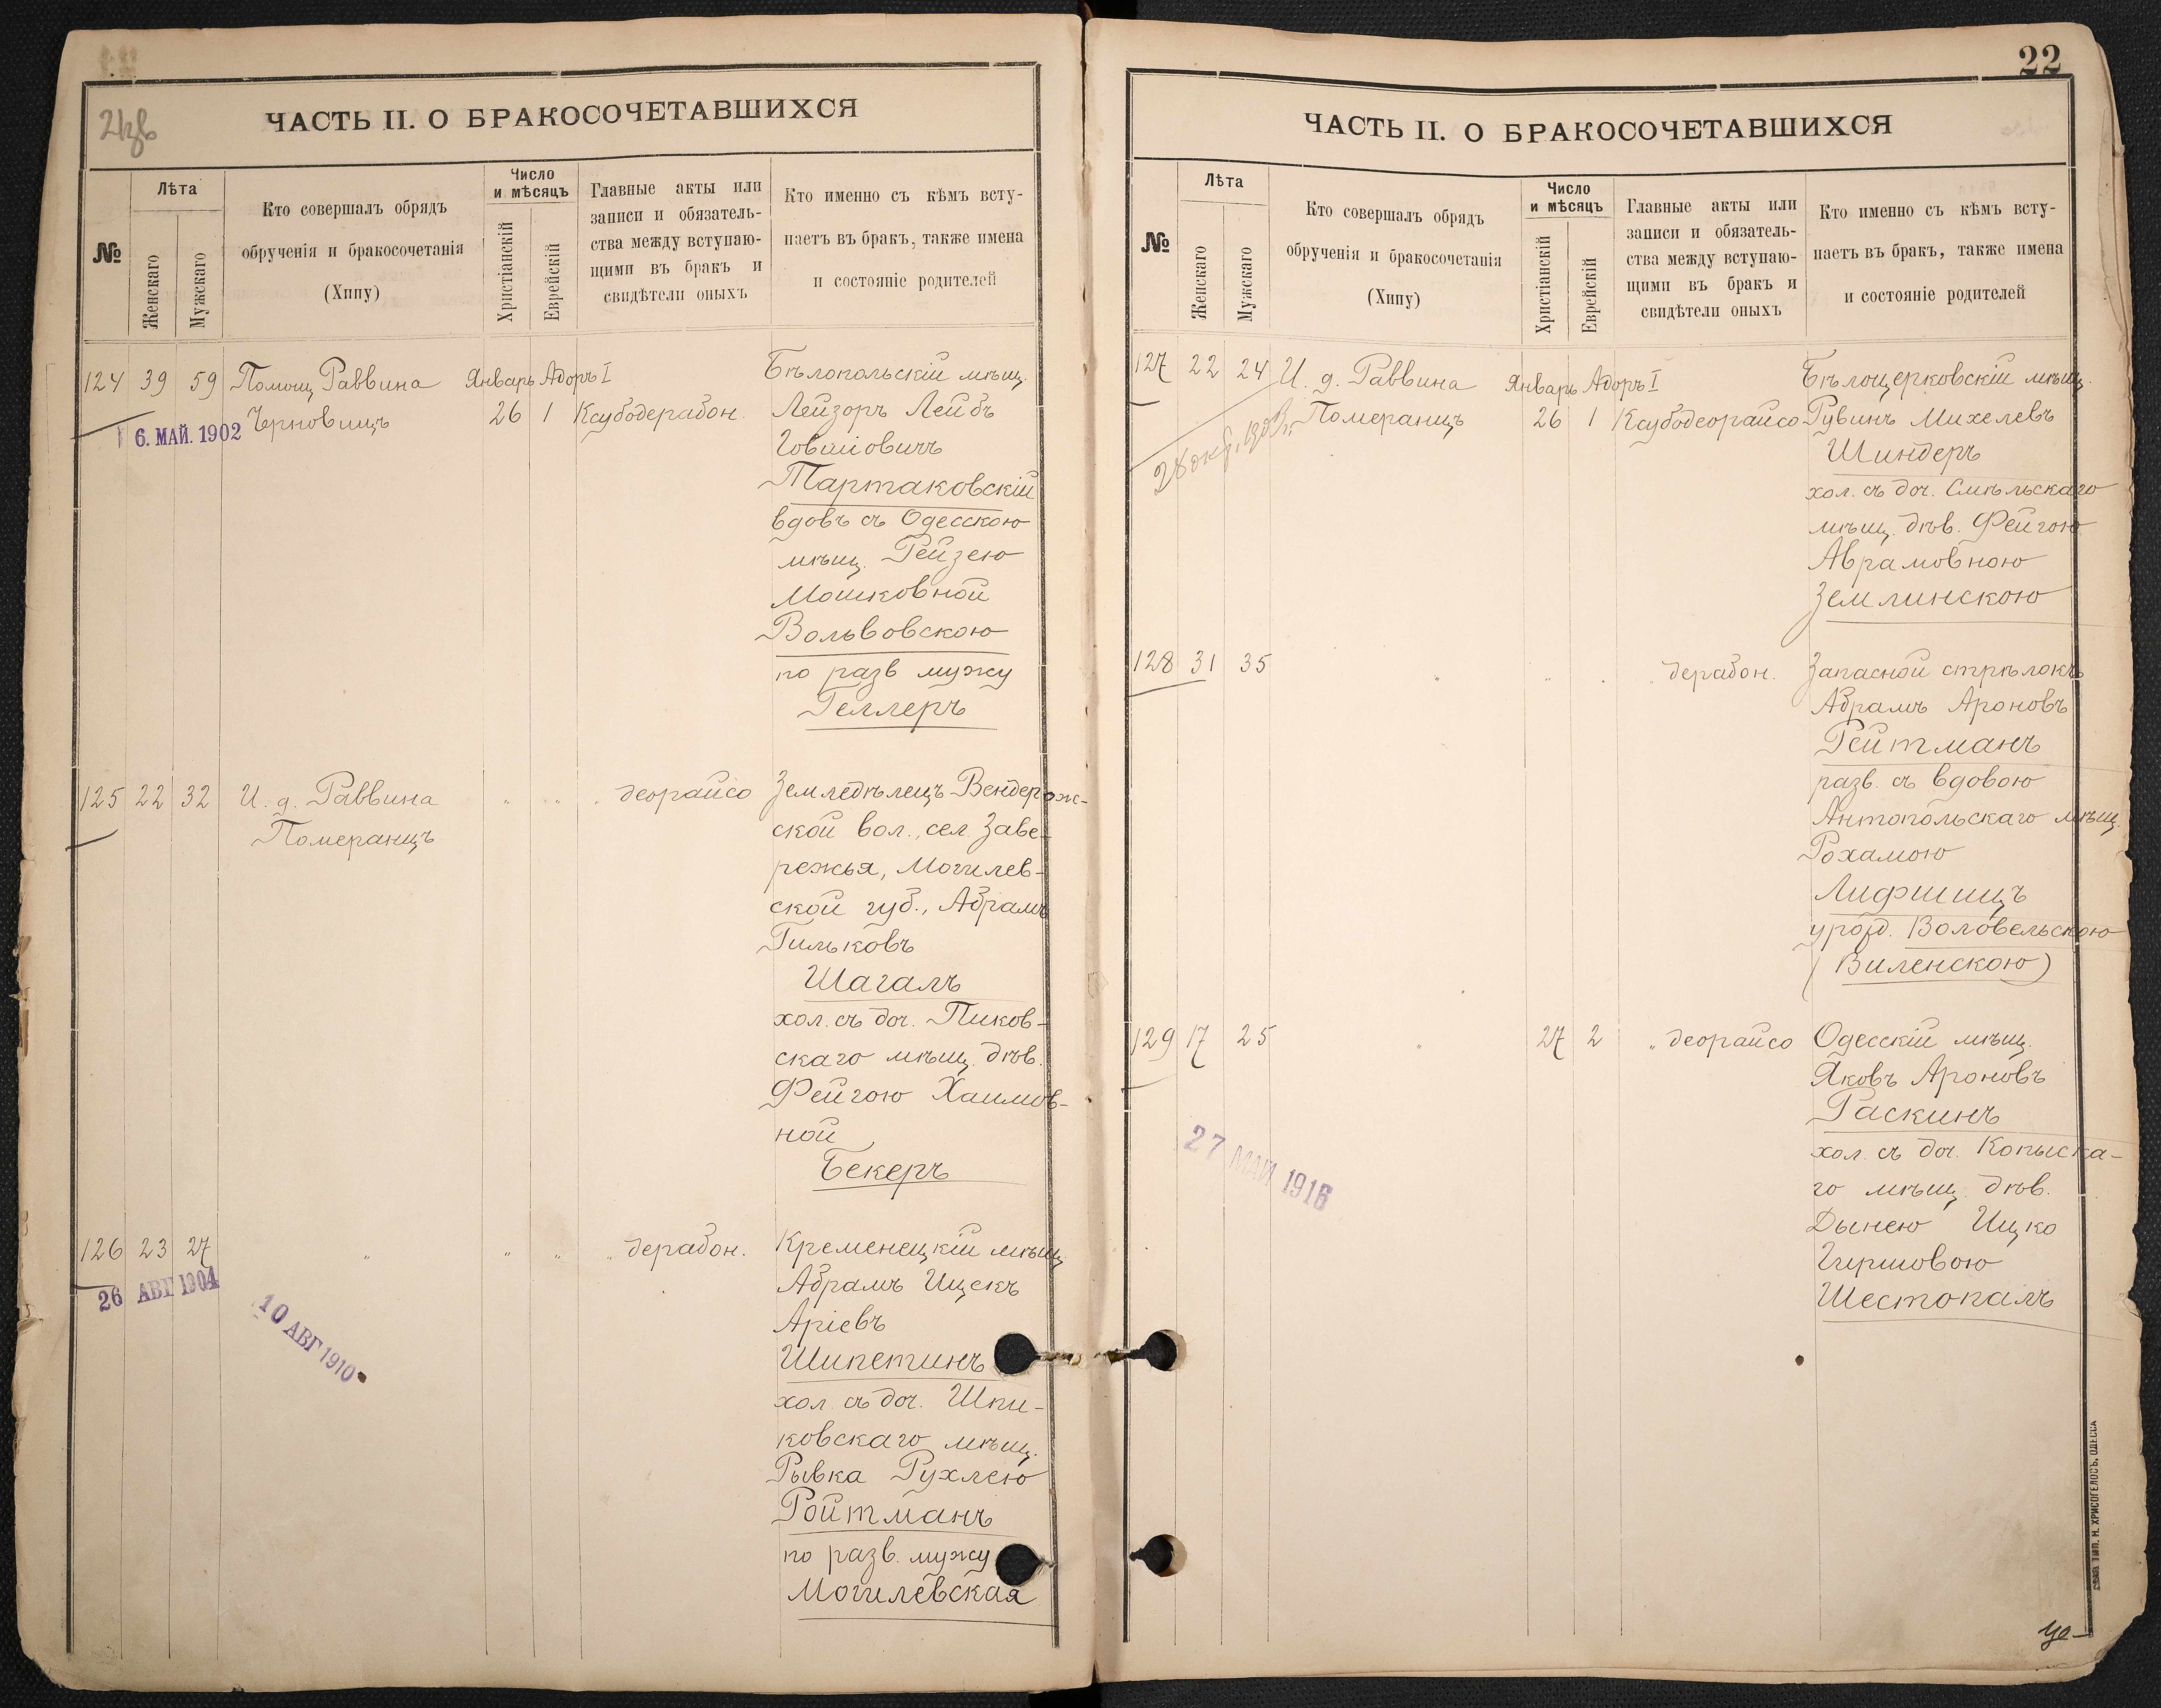 ЧАСТЬ II. О БРАКОСОЧЕТАВШИХСЯ
№
Лѣта
Женскаго
Мужскаго
Кто совершалъ обрядъ
обрученія и бракосочетанія
(Хипу)
Число
и мѣсяцъ
Христіанскій
Еврейскій
Главные акты или
записи и обязатель-
ства между вступаю-
щими въ бракъ и
свидѣтели оныхъ
Кто именно съ кѣмъ всту-
паетъ въ бракъ, также имена
и состояніе родителей
124 39 59 Помощ. Раввина Январь Адоръ I Бѣлопольскій мѣщ.
6. МАЙ. 1902 Черновицъ 26 1 Ксубодерабон. Лейзоръ Лейбъ
Говшіовичъ
Тартаковскій
вдовъ съ Одесскою
мѣщ. Рейзею
Мошковной
Вольвовскою
по разв мужу
Геллеръ
125 22 32 И. д. Раввина " " " деорайсо Земледѣлецъ Вендерож-
Померанцъ ской вол., сел. Заве-
режья, Могилев-
ской губ., Абрамъ
Гильковъ
Шагалъ
хол. съ доч. Пиков-
скаго мѣщ. дѣв.
Фейгою Хаимов-
ной
Бекеръ
126 23 27 " " " " дерабон. Кременецкій мѣщ.
26 АВГ 1904 Абрамъ Ицекъ
10 АВГ 1910 Аріевъ
Шипетинъ
хол. съ доч. Шпи-
ковскаго мѣщ.
Рывка Рухлею
Ройтманъ
по разв. мужу
Могилевская
22
ЧАСТЬ II. О БРАКОСОЧЕТАВШИХСЯ
№
Лѣта
Женскаго
Мужскаго
Кто совершалъ обрядъ
обрученія и бракосочетанія
(Хипу)
Число
и мѣсяцъ
Христіанскій
Еврейскій
Главные акты или
записи и обязатель-
ства между вступаю-
щими въ бракъ и
свидѣтели оныхъ
Кто именно съ кѣмъ всту-
паетъ въ бракъ, также имена
и состояніе родителей
127 22 24 И. д. Раввина Январь Адоръ I Бѣлоцерковскій мѣщ.
Померанцъ 26 1 Ксубодеорайсо Рувинъ Михелевъ
Шиндеръ
хол. съ доч. Смѣльскаго
мѣщ. дѣв. Фейгою
Аврамовною
Землинскою
128 31 35 " " " " дерабон. Запасной стрѣлокъ
Абрамъ Ароновъ
Рейтманъ
разв. съ вдовою
Антопольскаго мѣщ.
Рохамою
Лифшицъ
урожд. Воловельскою
(Виленскою)
129 17 25 " 27 2 " деорайсо Одесскій мѣщ.
Яковъ Ароновъ
Раскинъ
хол. съ доч. Копыска-
го мѣщ. дѣв.
27 МАЙ 1916 Дынею Ицко
Гиршовою
Шестопалъ
ТИП. Н. ХРИСОГЕЛОСЪ, ОДЕССА